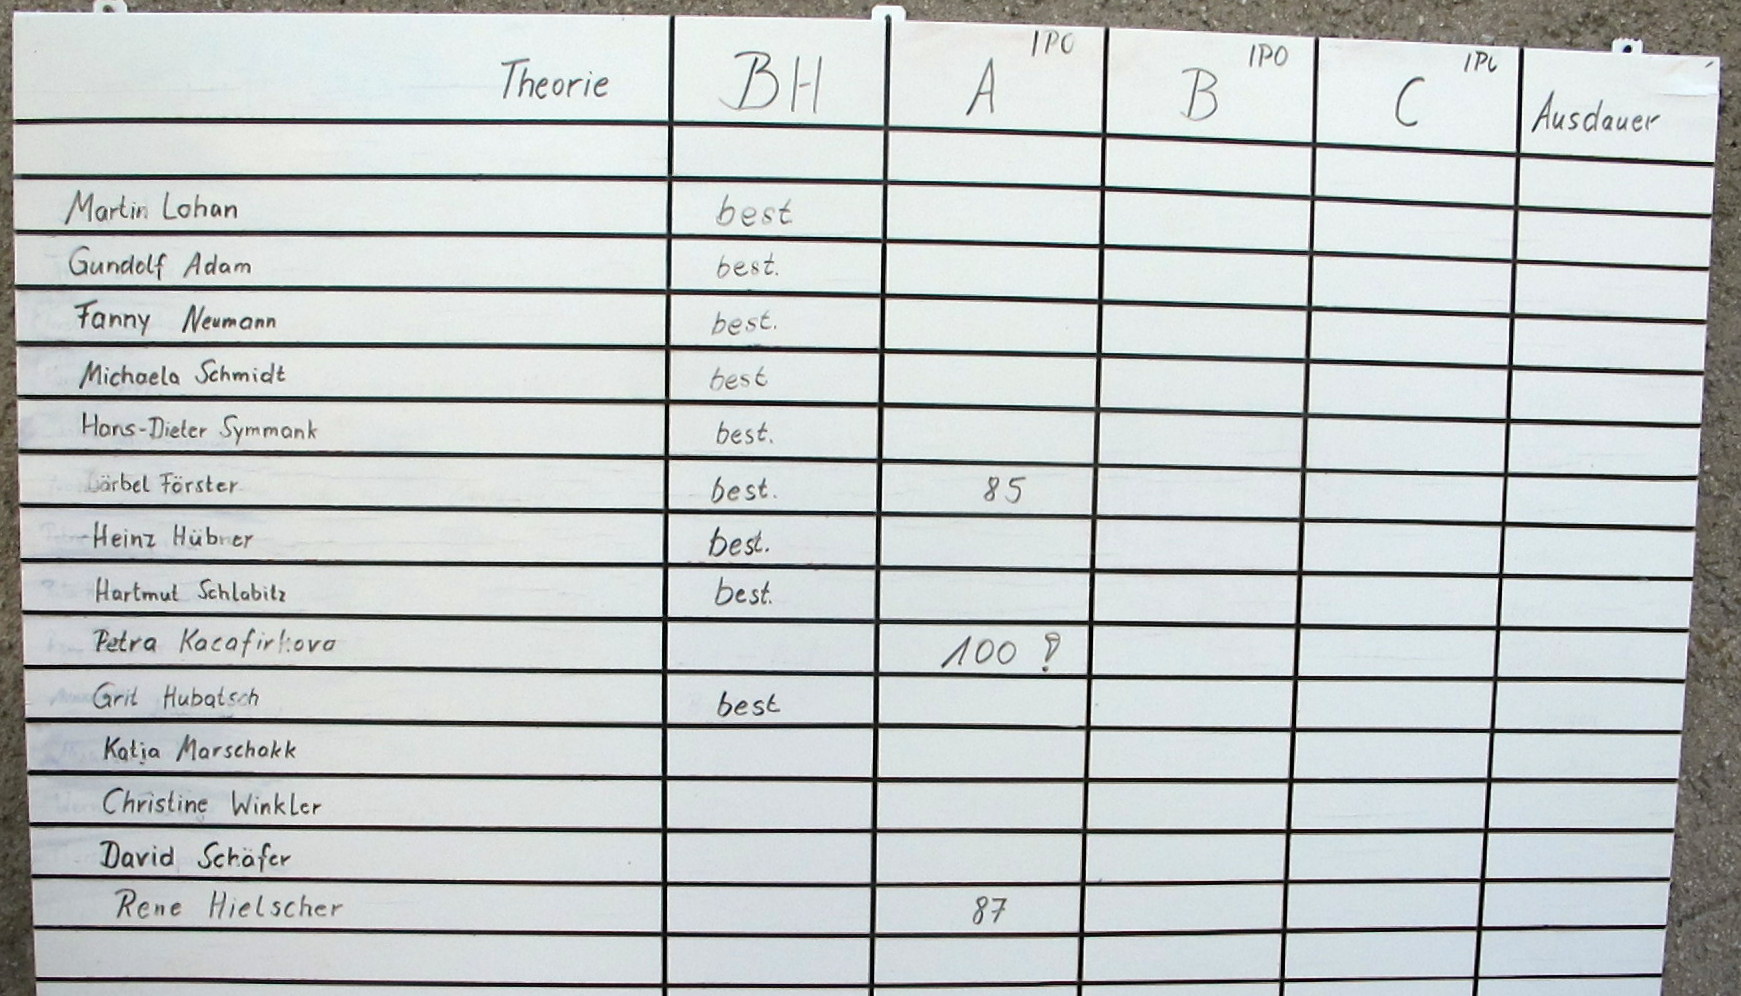 Theorie BH A IPO B IPO C IPO Ausdauer
Martin Lohan best
Gundolf Adam best.
Fanny Neumann best.
Michaela Schmidt best
Hans-Dieter Symmank best.
Bärbel Förster best. 85
Heinz Hübner best.
Hartmut Schlabitz best.
Petra Kacafirkova 100 !
Grit Hubatsch best
Katja Marschakk
Christine Winkler
David Schäfer
Rene Hielscher 87